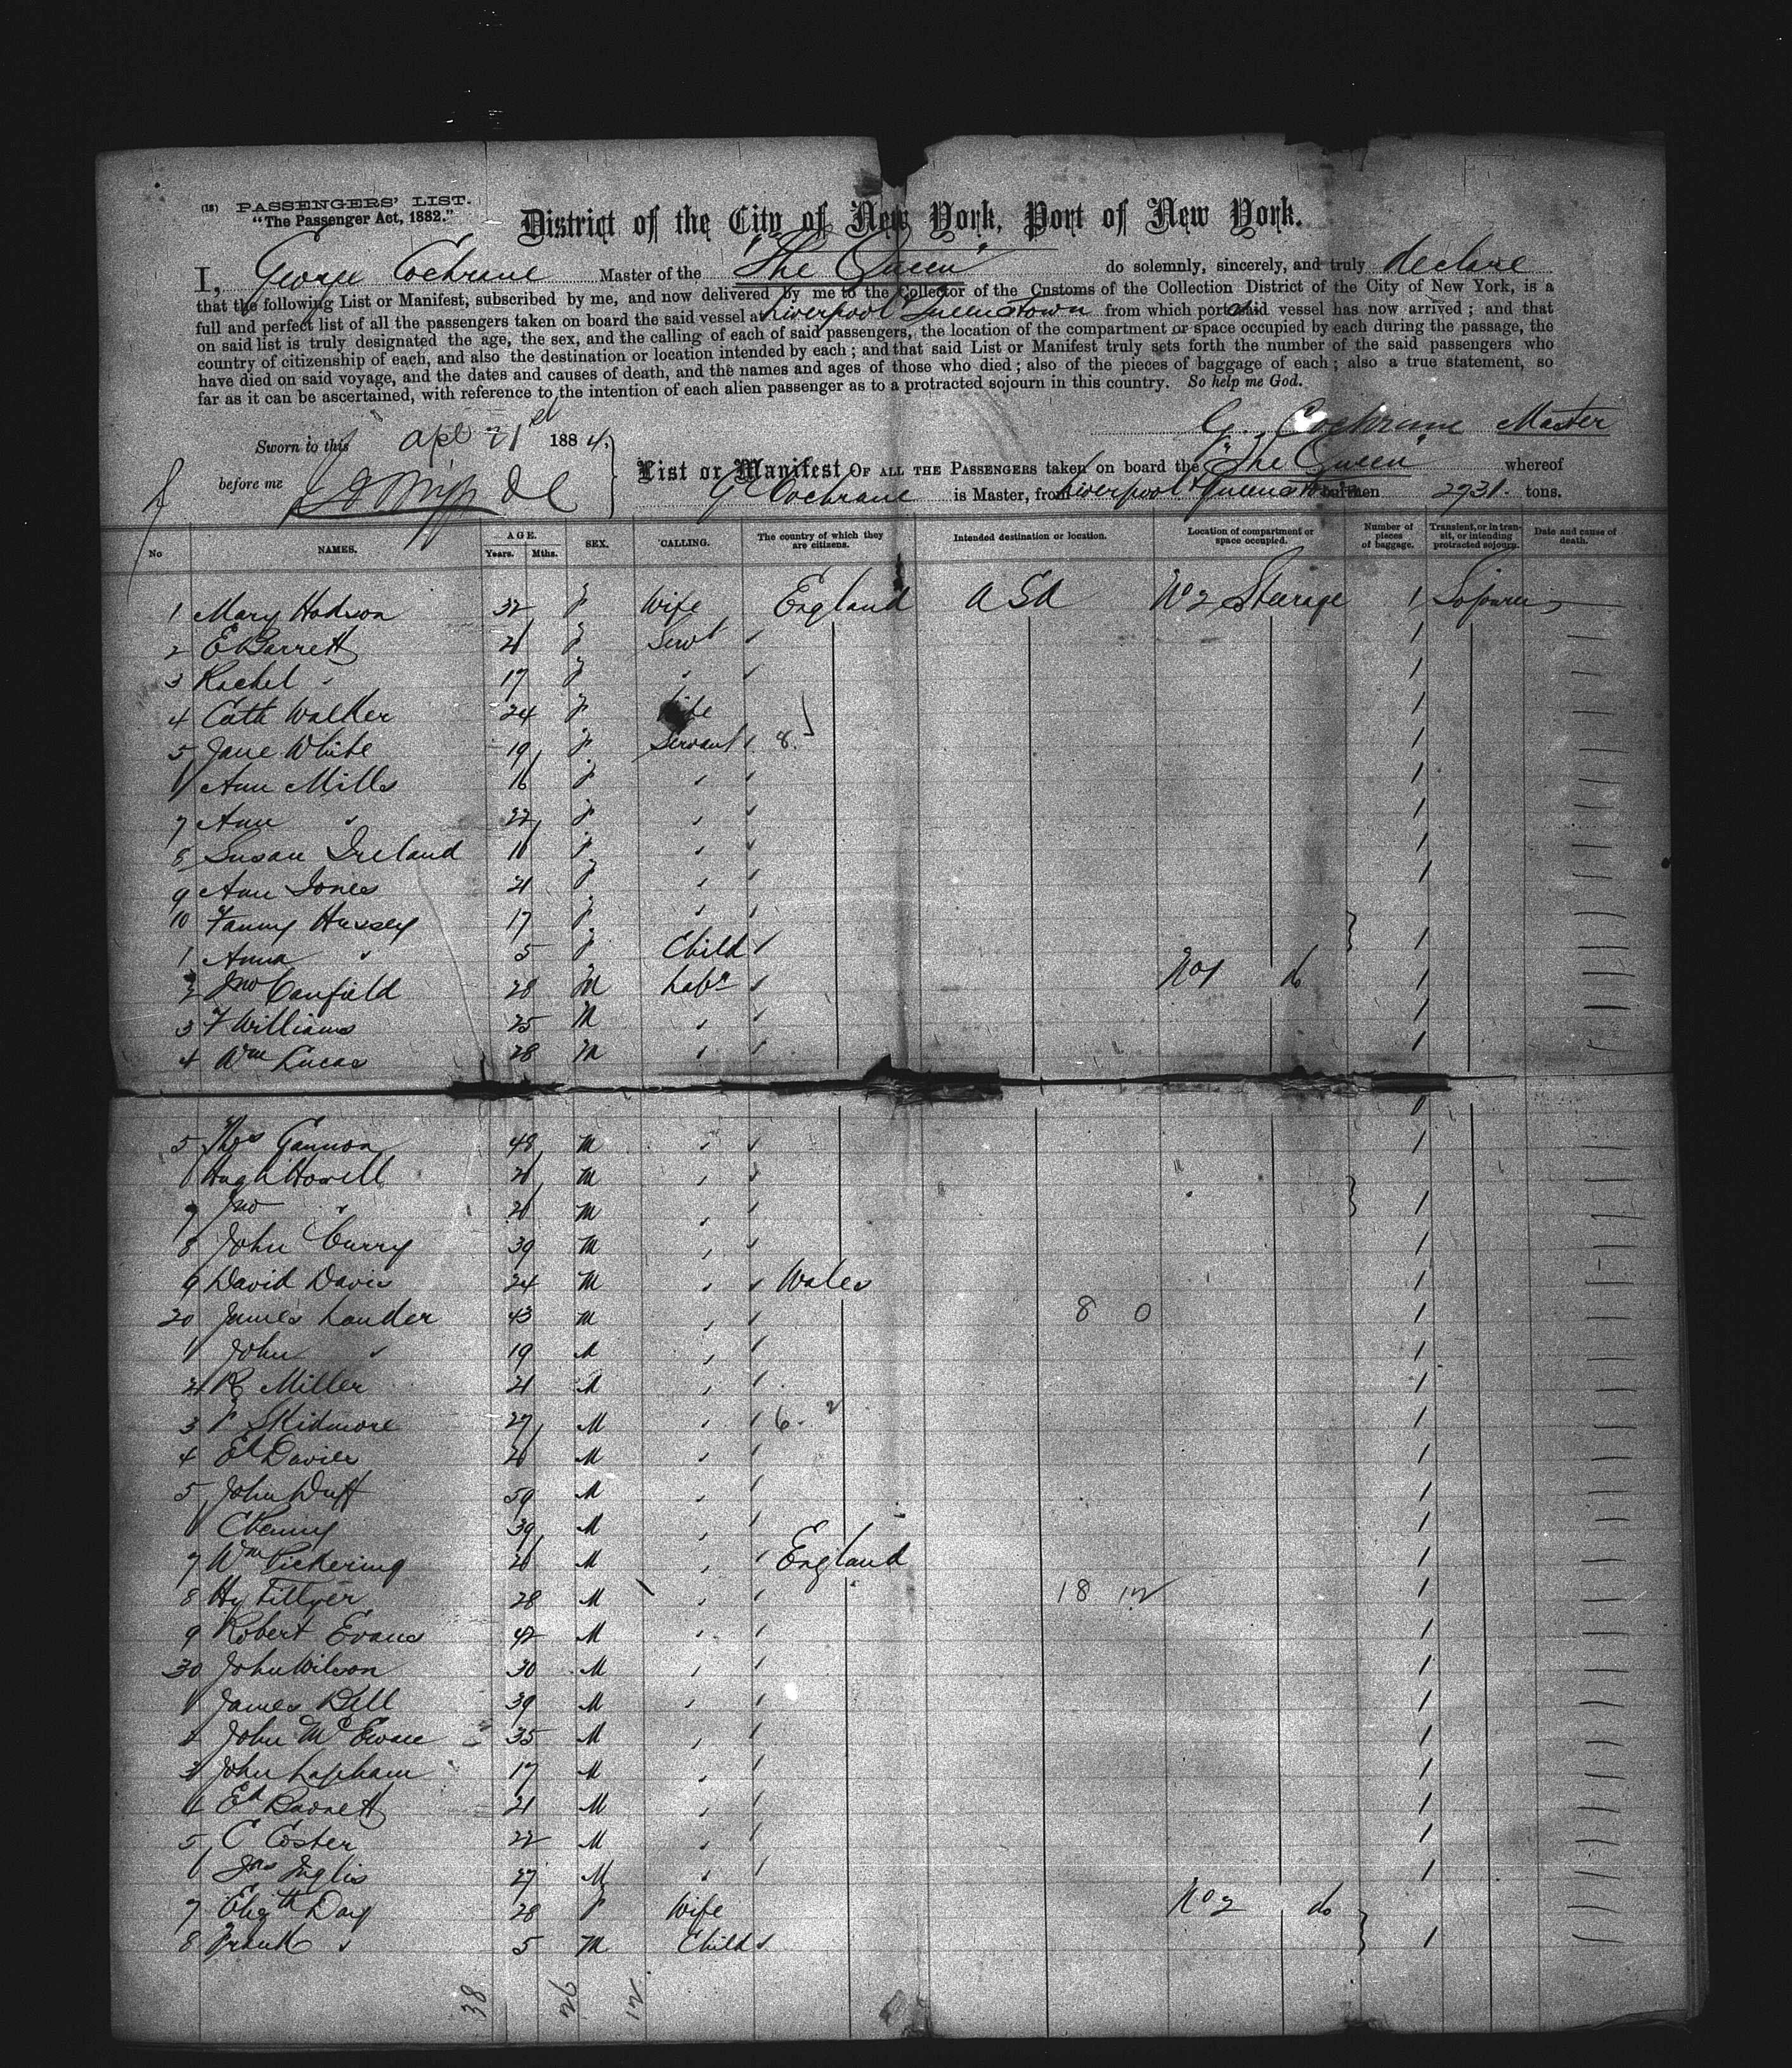 (18) PASSENGERS' LIST.
"The Passenger Act, 1882."
District of the City of New York, Port of New York.
I, George Cochrane Master of the "The Queen" do solemnly, sincerely, and truly declare
that the following List or Manifest, subscribed by me, and now delivered by me to the Collector of the Customs of the Collection District of the City of New York, is a
full and perfect list of all the passengers taken on board the said vessel at Liverpool Queenstown from which port said vessel has now arrived; and that
on said list is truly designated the age, the sex, and the calling of each of said passengers, the location of the compartment or space occupied by each during the passage, the
country of citizenship of each, and also the destination or location intended by each; and that said List or Manifest truly sets forth the number of the said passengers who
have died on said voyage, and the dates and causes of death, and the names and ages of those who died; also of the pieces of baggage of each; also a true statement, so
far as it can be ascertained, with reference to the intention of each alien passenger as to a protracted sojourn in this country. So help me God.
G. Cochrane Master
Sworn to this Apl 21st 1884.
before me
List or Manifest OF ALL THE PASSENGERS taken on board the "The Queen" whereof
G Cochrane is Master, from Liverpool & Queenstown burthen 2731. tons.
No NAMES. AGE. Years. Mths. SEX. CALLING. The country of which they are citizens. Intended destination or location. Location of compartment or space occupied. Number of pieces of baggage. Transient, or in transit, or intending protracted sojourn. Date and cause of death.
1 Mary Hodson 32 F Wife England USA No 2 Steerage 1 Sojourn
2 E Barrett F Servt " 1
3 Rachel " 17 F " " 1
4 Cath Walker 24 F Wife 1
5 Jane White 19 F Servant " 8. 1
6 Ann Mills 16 F " " 1
7 Ann " 22 F " " 1
8 Susan Ireland F " " 1
9 Ann Jones 21 F " " 1
10 Fanny Hussey 17 F " "
1 Anna " 5 F Child " 1
2 Jno Canfield 28 M Labr " No 1 do 1
3 F Williams 25 M " " 1
4 Wm Lucas 28 M " " 1
5 Thos Gannon 48 M " " 1
6 Hugh Howell M " "
7 Jno " M " " 1
8 John Curry 39 M " " 1
9 David Davis 24 M " " Wales 1
20 James Lauder 43 M " " 8 0 1
1 John " 19 M " " 1
2 R Miller 21 M " " 1
3 Skidmore 27 M " " 6. 1
4 Ed Davies M " " 1
5 John Duff 59 M " " 1
6 39 M " " 1
7 Wm Pickering M " " England 1
8 Hy Tillyer 28 M " " 18 12 1
9 Robert Evans 42 M " " 1
30 John Wilson 30 M " " 1
1 James Bell 39 M " " 1
2 John McEwan 35 M " " 1
3 John Lapham 17 M " " 1
4 Ed Barnett 21 M " " 1
5 C Coster 22 M " " 1
6 Jas Inglis 27 M " " 1
7 Elizth Day 28 F Wife No 2 do
8 Frank " 5 M Child " 1
38 26 12